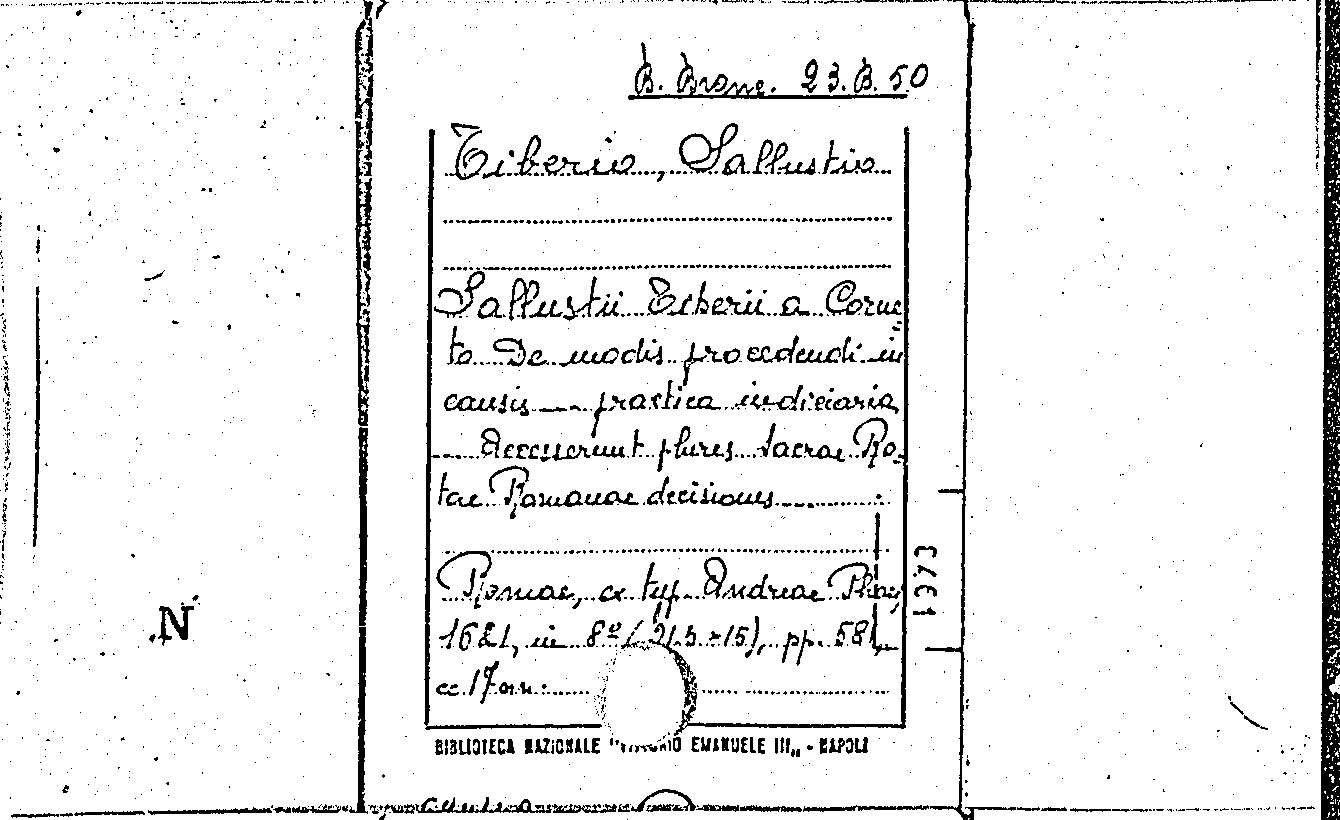 B. Branc. 23.B.50
Tiberio, Sallustio
Sallustii Tiberii a Corne-
to De modis procedendi in
causis --- practica iudiciaria
--- Accesserunt plures Sacrae Ro-
tae Romanae decisiones ---
Romae, ex typ. Andreae Phaei,
1621, in 8º (21.5 x 15), pp. 581,
cc. 17 nn.
BIBLIOTECA NAZIONALE "VITTORIO EMANUELE III" - NAPOLI
1973
N